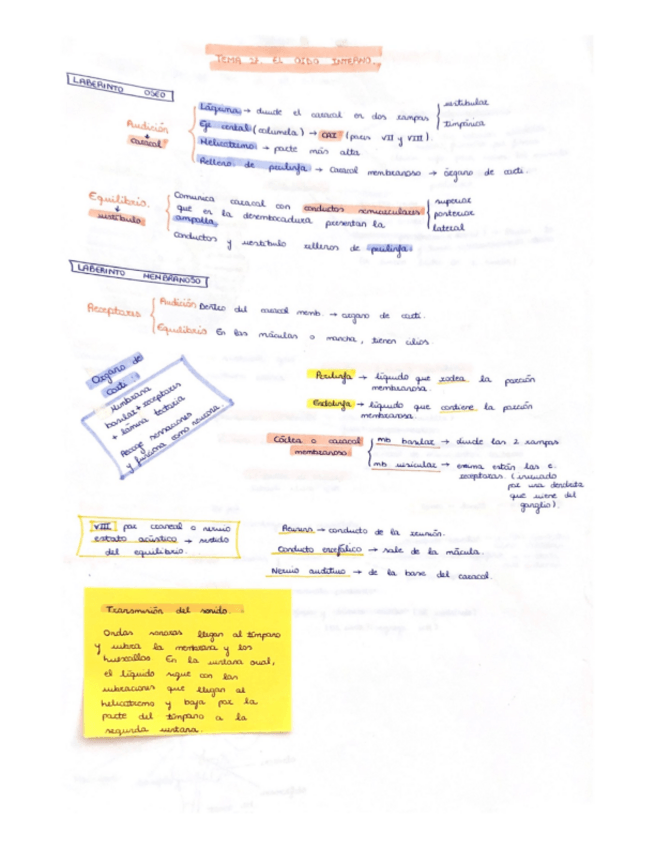 TEMA 27. EL OIDO INTERNO.
LABERINTO OSEO
Audición
↓
caracol
Láguna → divide el caracol en dos rampas
vestibular
timpánica
Eje central (columela) → CAI (pares VII y VIII).
Helicotrema → parte más alta
Relleno de perilinfa → caracol membranoso → órgano de corti.
Equilibrio.
↓
vestíbulo
Comunica caracol con conductos semicirculares
que en la desembocadura presentan la
ampolla.
superior
posterior
lateral
Conductos y vestíbulo rellenos de perilinfa.
LABERINTO MEMBRANOSO
Receptores
Audición Dentro del caracol memb. → organo de corti.
Equilibrio En las máculas o mancha, tienen cilios.
Organo de
corti.
Membrana
basilar + receptores
+ lámina tectoria
Recoge sensaciones
y funciona como neurona
Perilinfa → líquido que rodea la porción
membranosa.
Endolinfa → líquido que contiene la porción
membranosa.
Cóclea o caracol
membranoso
mb basilar → divide las 2 rampas
mb vesicular → encima están las c.
receptoras. (
por una dendrita
que viene del
ganglio).
VIII par craneal o nervio
estato acústico → sentido
del equilibrio.
Reuniens → conducto de la reunión.
Conducto encefálico → sale de la mácula.
Nervio auditivo → de la base del caracol.
Transmisión del sonido.
Ondas sonoras llegan al tímpano
y vibra la membrana y los
huesecillos En la ventana oval,
el líquido sigue con las
vibraciones que llegan al
helicotrema y baja por la
parte del tímpano a la
segunda ventana.